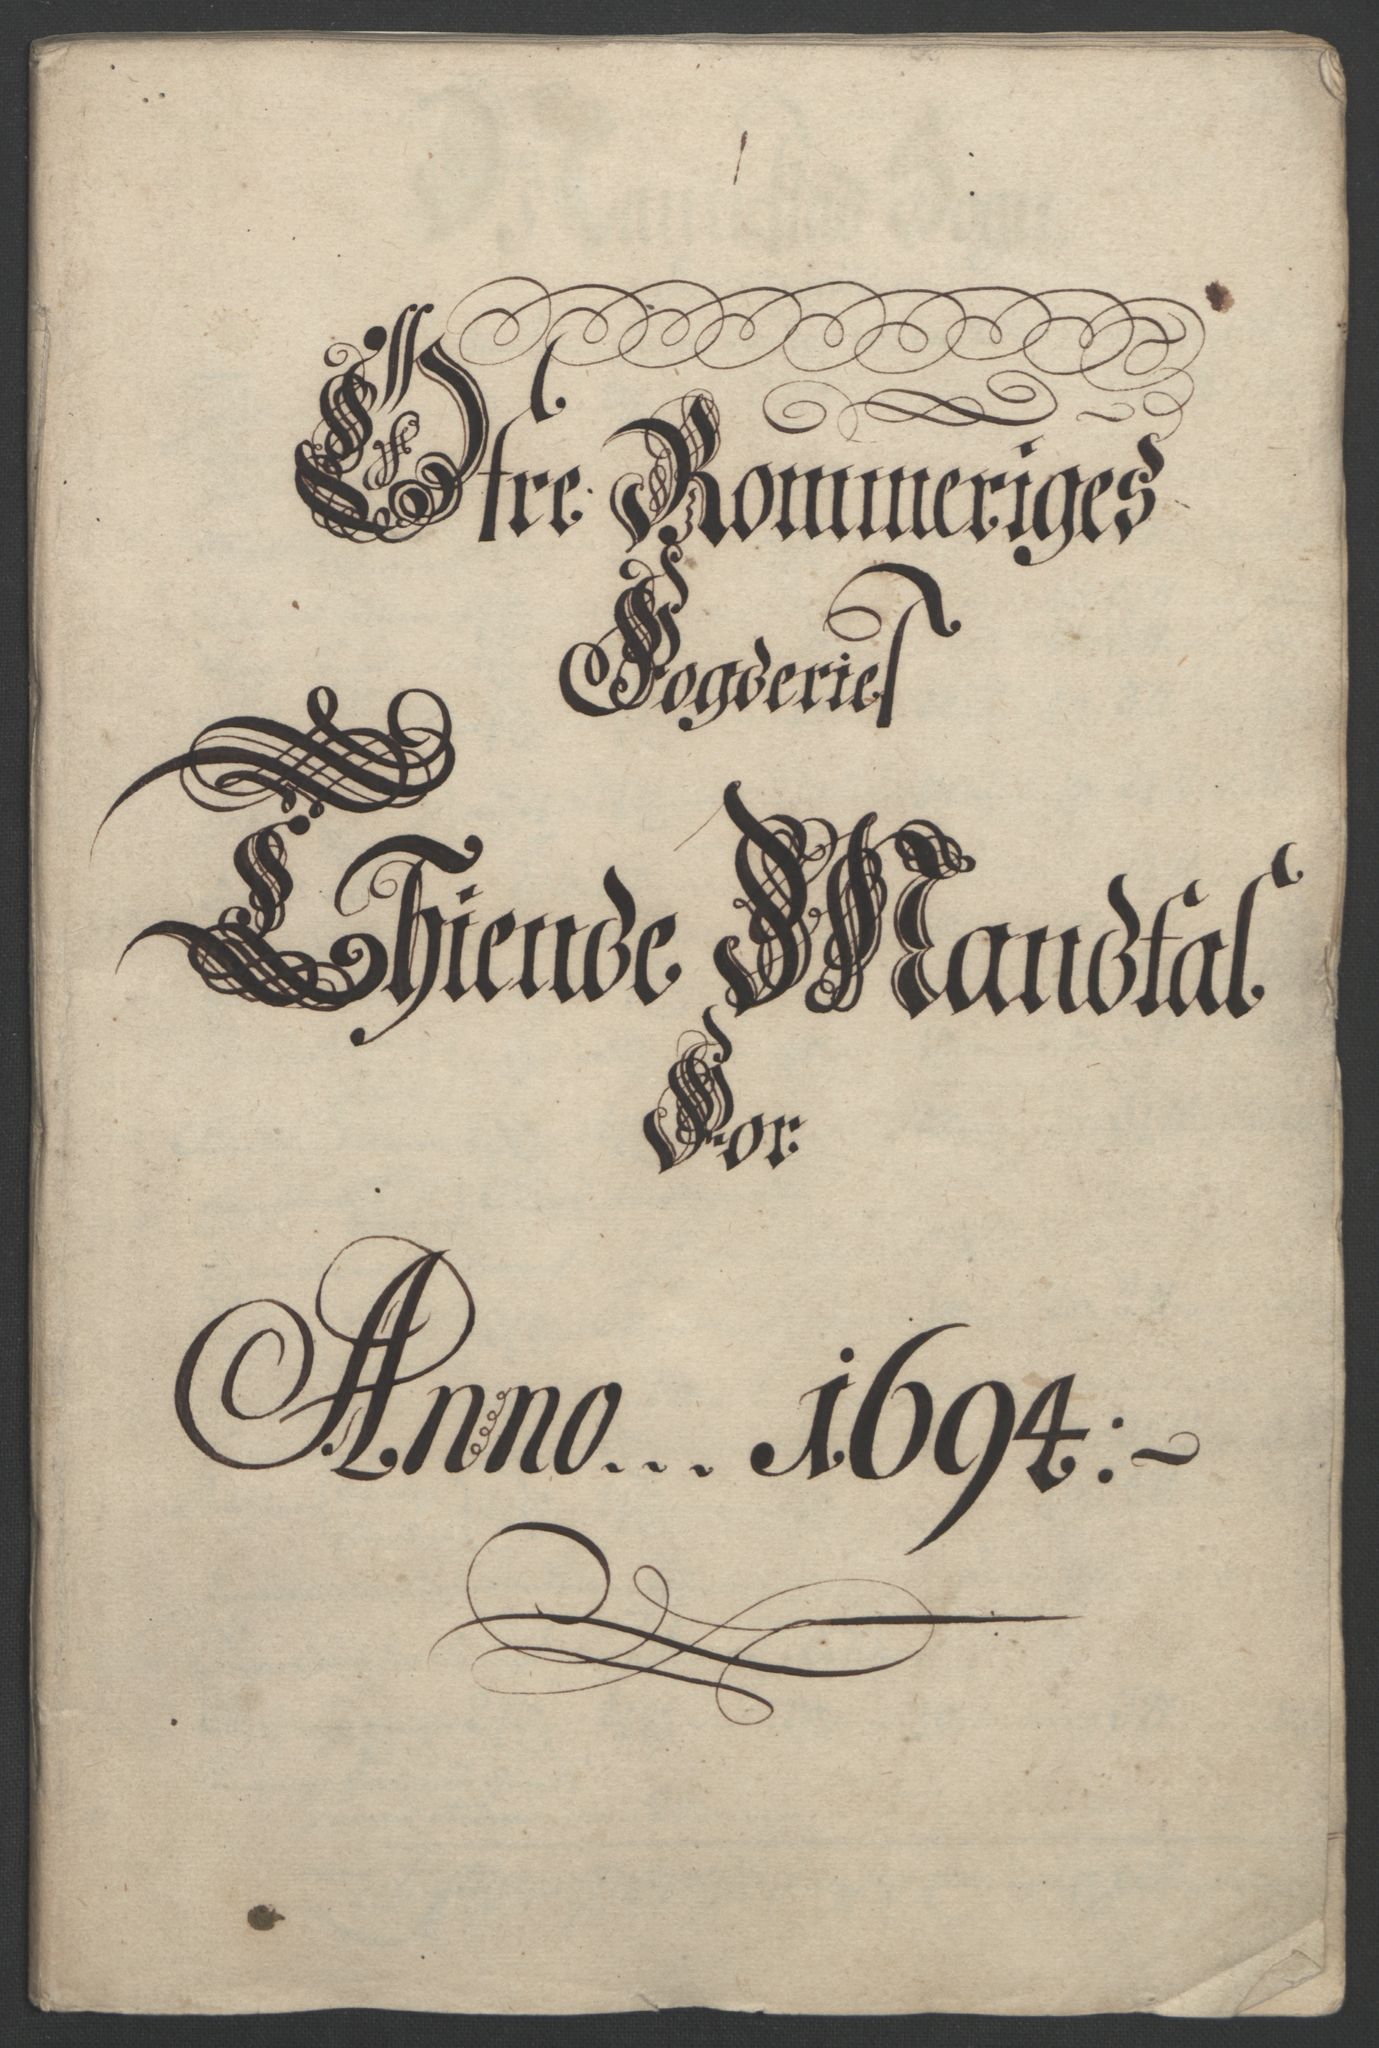 Øfre Rommeriges
Fogderies
Thiende Mandtal
For
Anno... 1694:~